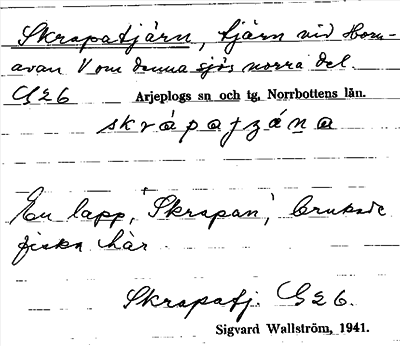 Skrapatjärn, tjärn vid Horn-
avan V om denna sjös norra del.
G26 Arjeplogs sn och tg, Norrbottens län.
En lapp, 'Skrapan', brukade
fiska här
Skrapatj. G26.
Sigvard Wallström, 1941.